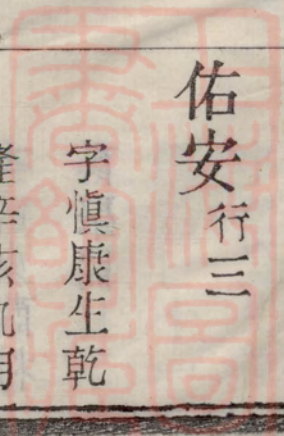 佑安行三
字慎康生乾
隆辛亥九月